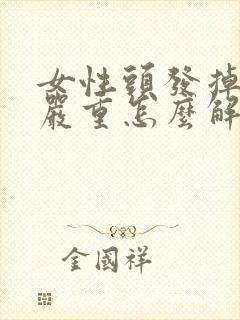 女性頭發掉
嚴重怎麼解
金國祥